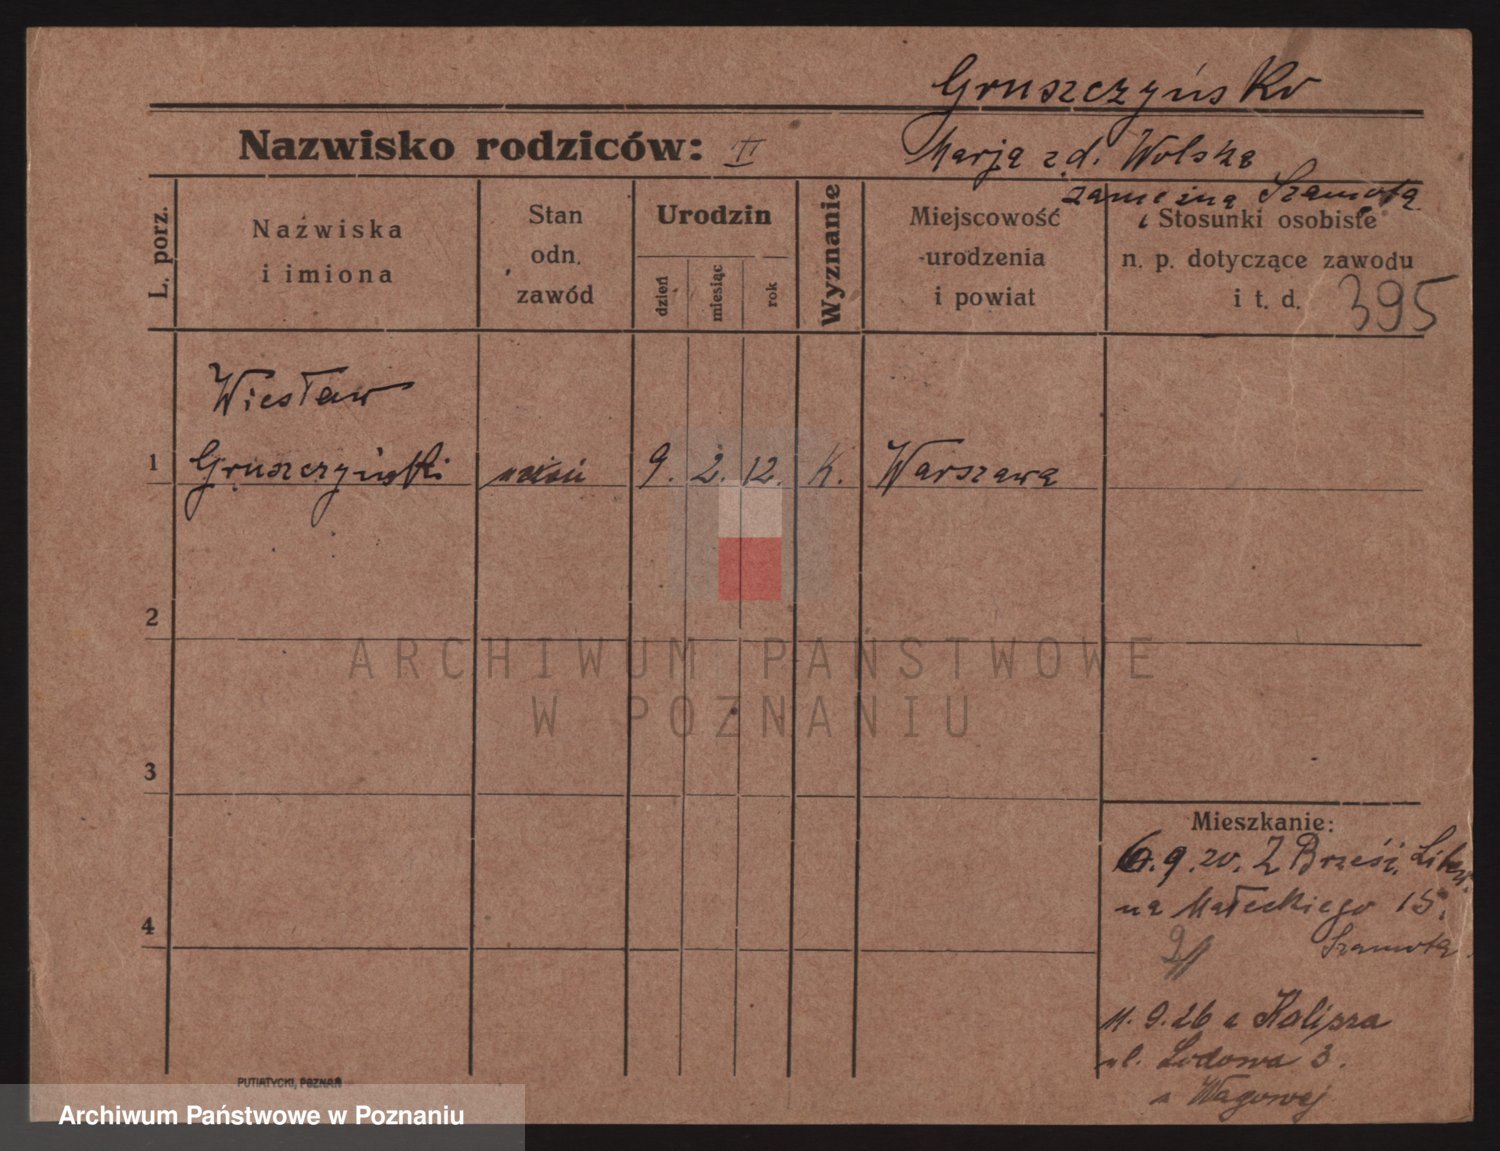 Gruszczyńsko
Nazwisko rodziców: II
Marja zd. Wolska
zamężna Szamota
L. porz.
Nazwiska
i imiona
Stan
odn.
zawód
Urodzin
dzień
miesiąc
rok
Wyznanie
Miejscowość
urodzenia
i powiat
Stosunki osobiste
n. p. dotyczące zawodu
i t. d. 395
Wiesław
1 Gruszczyński uczeń 9. 2. 12. K. Warszawa
2
3
4
ARCHIWUM PAŃSTWOWE
W POZNANIU
Mieszkanie:
6.9.20. Z Brześć. Litew.
na Małeckiego 15.
Szamota
11.9.26 z Kalisza
ul. Lodowa 3.
Wagowej
PUTIATYCKI, POZNAŃ
Archiwum Państwowe w Poznaniu